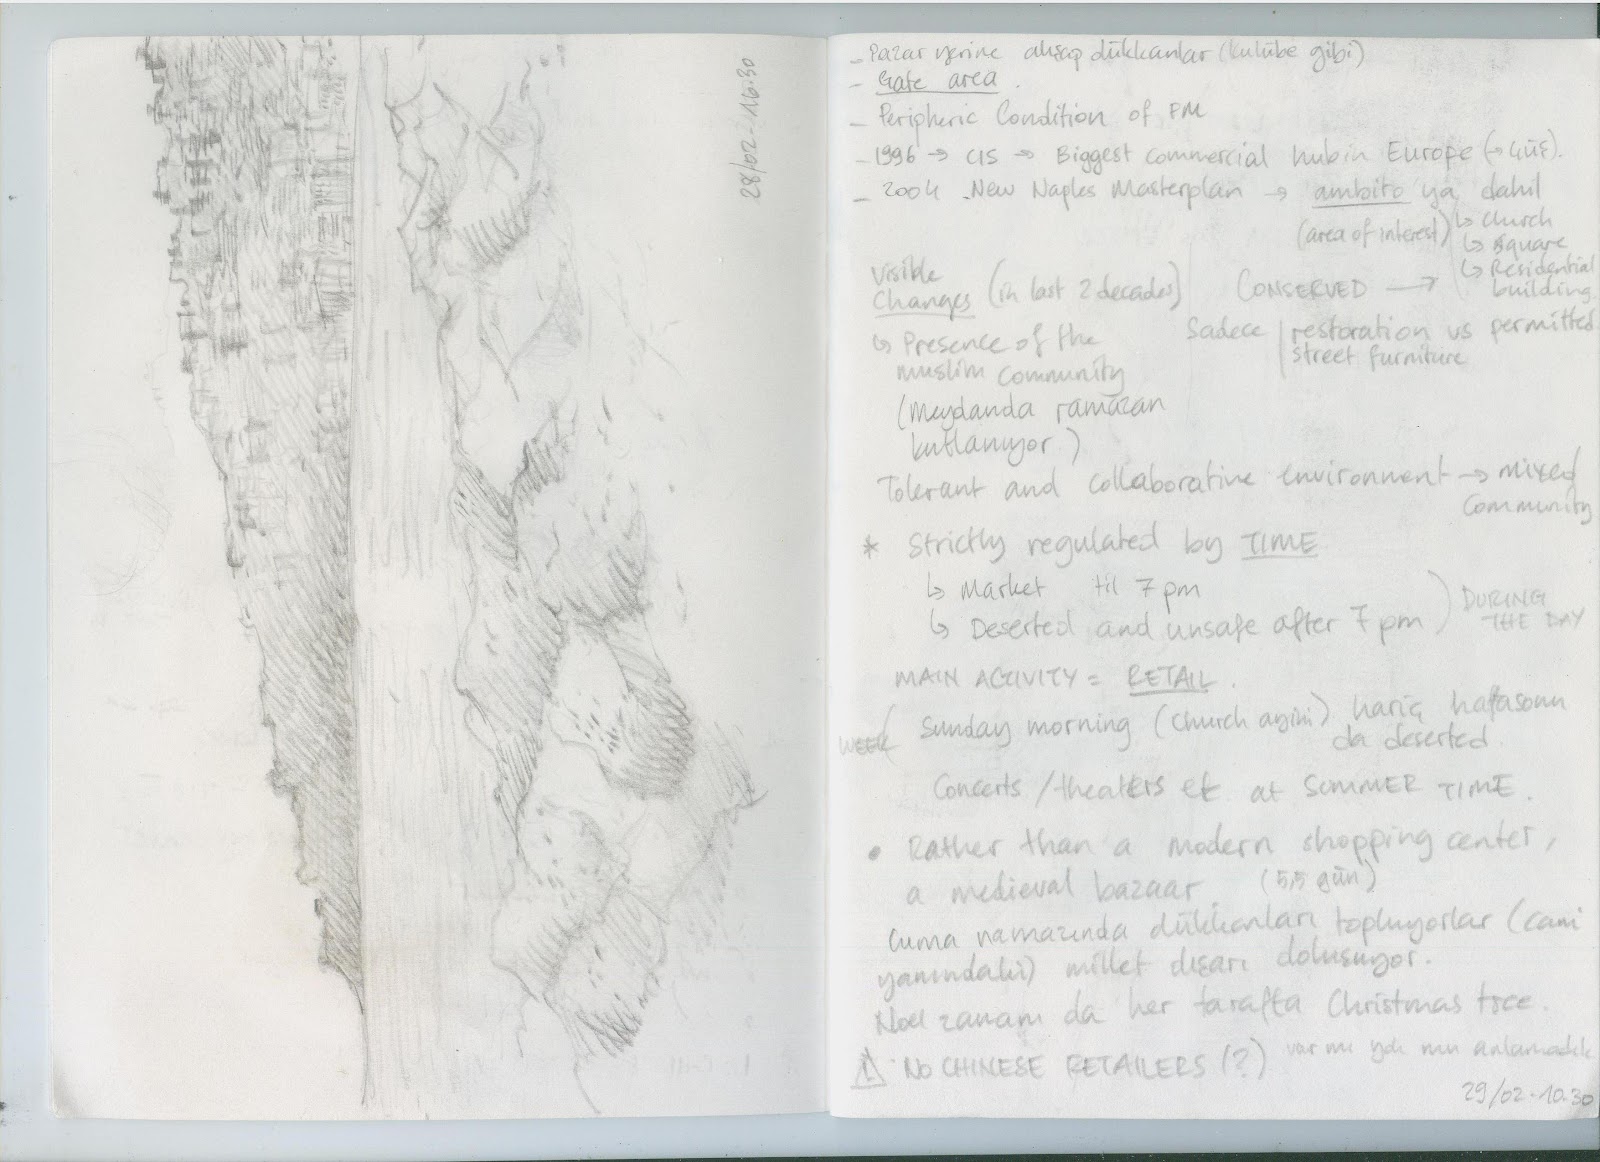 28/02 - 16.30
- Pazar yerine ahşap dükkanlar (kulübe gibi)
- Gate area.
- Peripheric Condition of PM
- 1996 → CIS → Biggest commercial hub in Europe
- 2004 New Naples Masterplan → ambito ya dahil
(area of interest) ↳ church
↳ square
↳ Residential building
Visible Changes (in last 2 decades)
CONSERVED →
Sadece restoration vs permitted
street furniture
↳ Presence of the
muslim community
(Meydanda ramazan
kutlanıyor)
Tolerant and collaborative environment → mixed
community
* Strictly regulated by TIME
↳ Market til 7 pm
↳ Deserted and unsafe after 7 pm
DURING
THE DAY
MAIN ACTIVITY = RETAIL.
WEEK
Sunday morning (church ayini) hariç haftasonu
da deserted.
Concerts / theaters etc at SUMMER TIME.
• Rather than a modern shopping center,
a medieval bazaar. (5,5 gün)
Cuma namazında dükkanları topluyorlar (cami
yanındaki) millet dışarı doluşuyor.
Noel zamanı da her tarafta Christmas tree.
⚠ NO CHINESE RETAILERS (?) var mı yok mu anlamadık
29/02 - 10.30